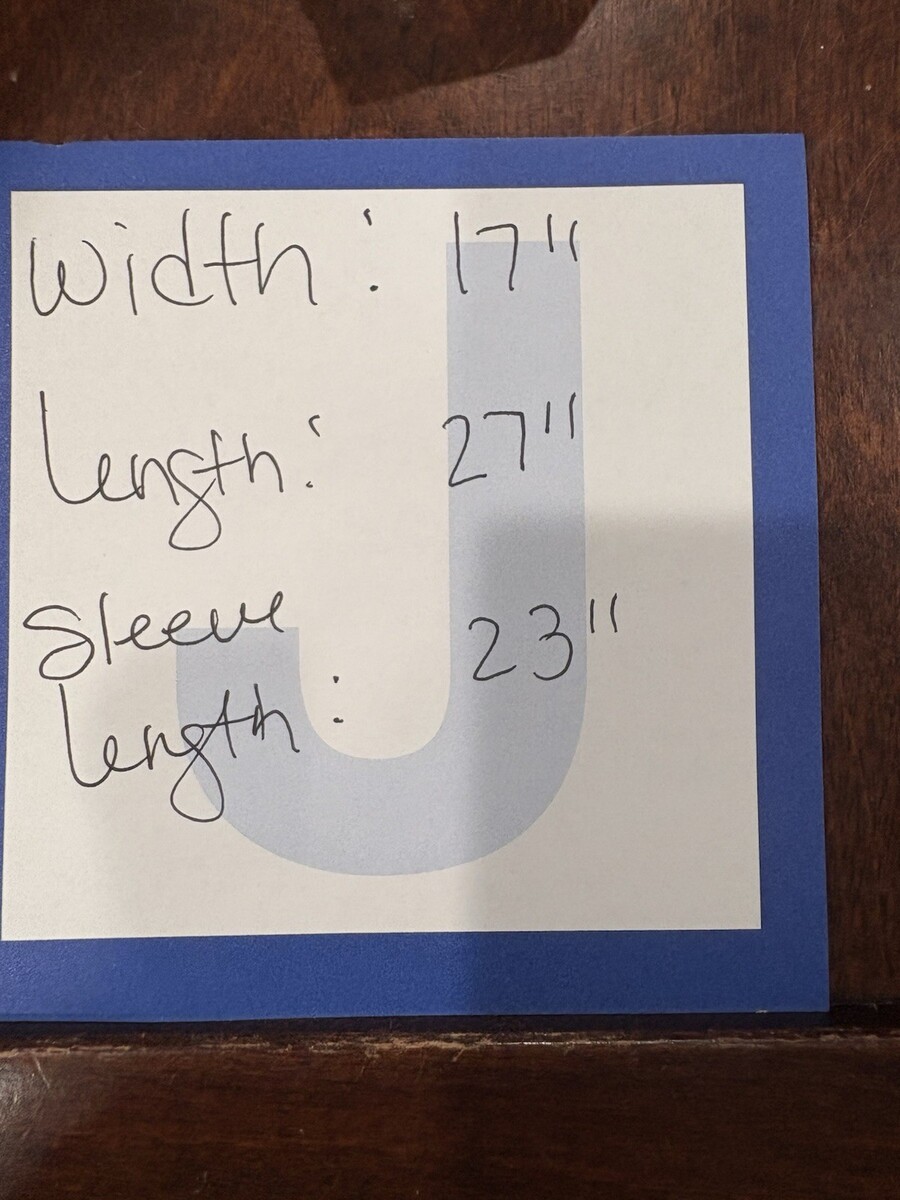 Width: 17"
Length: 27"
Sleeve
Length: 23"
J